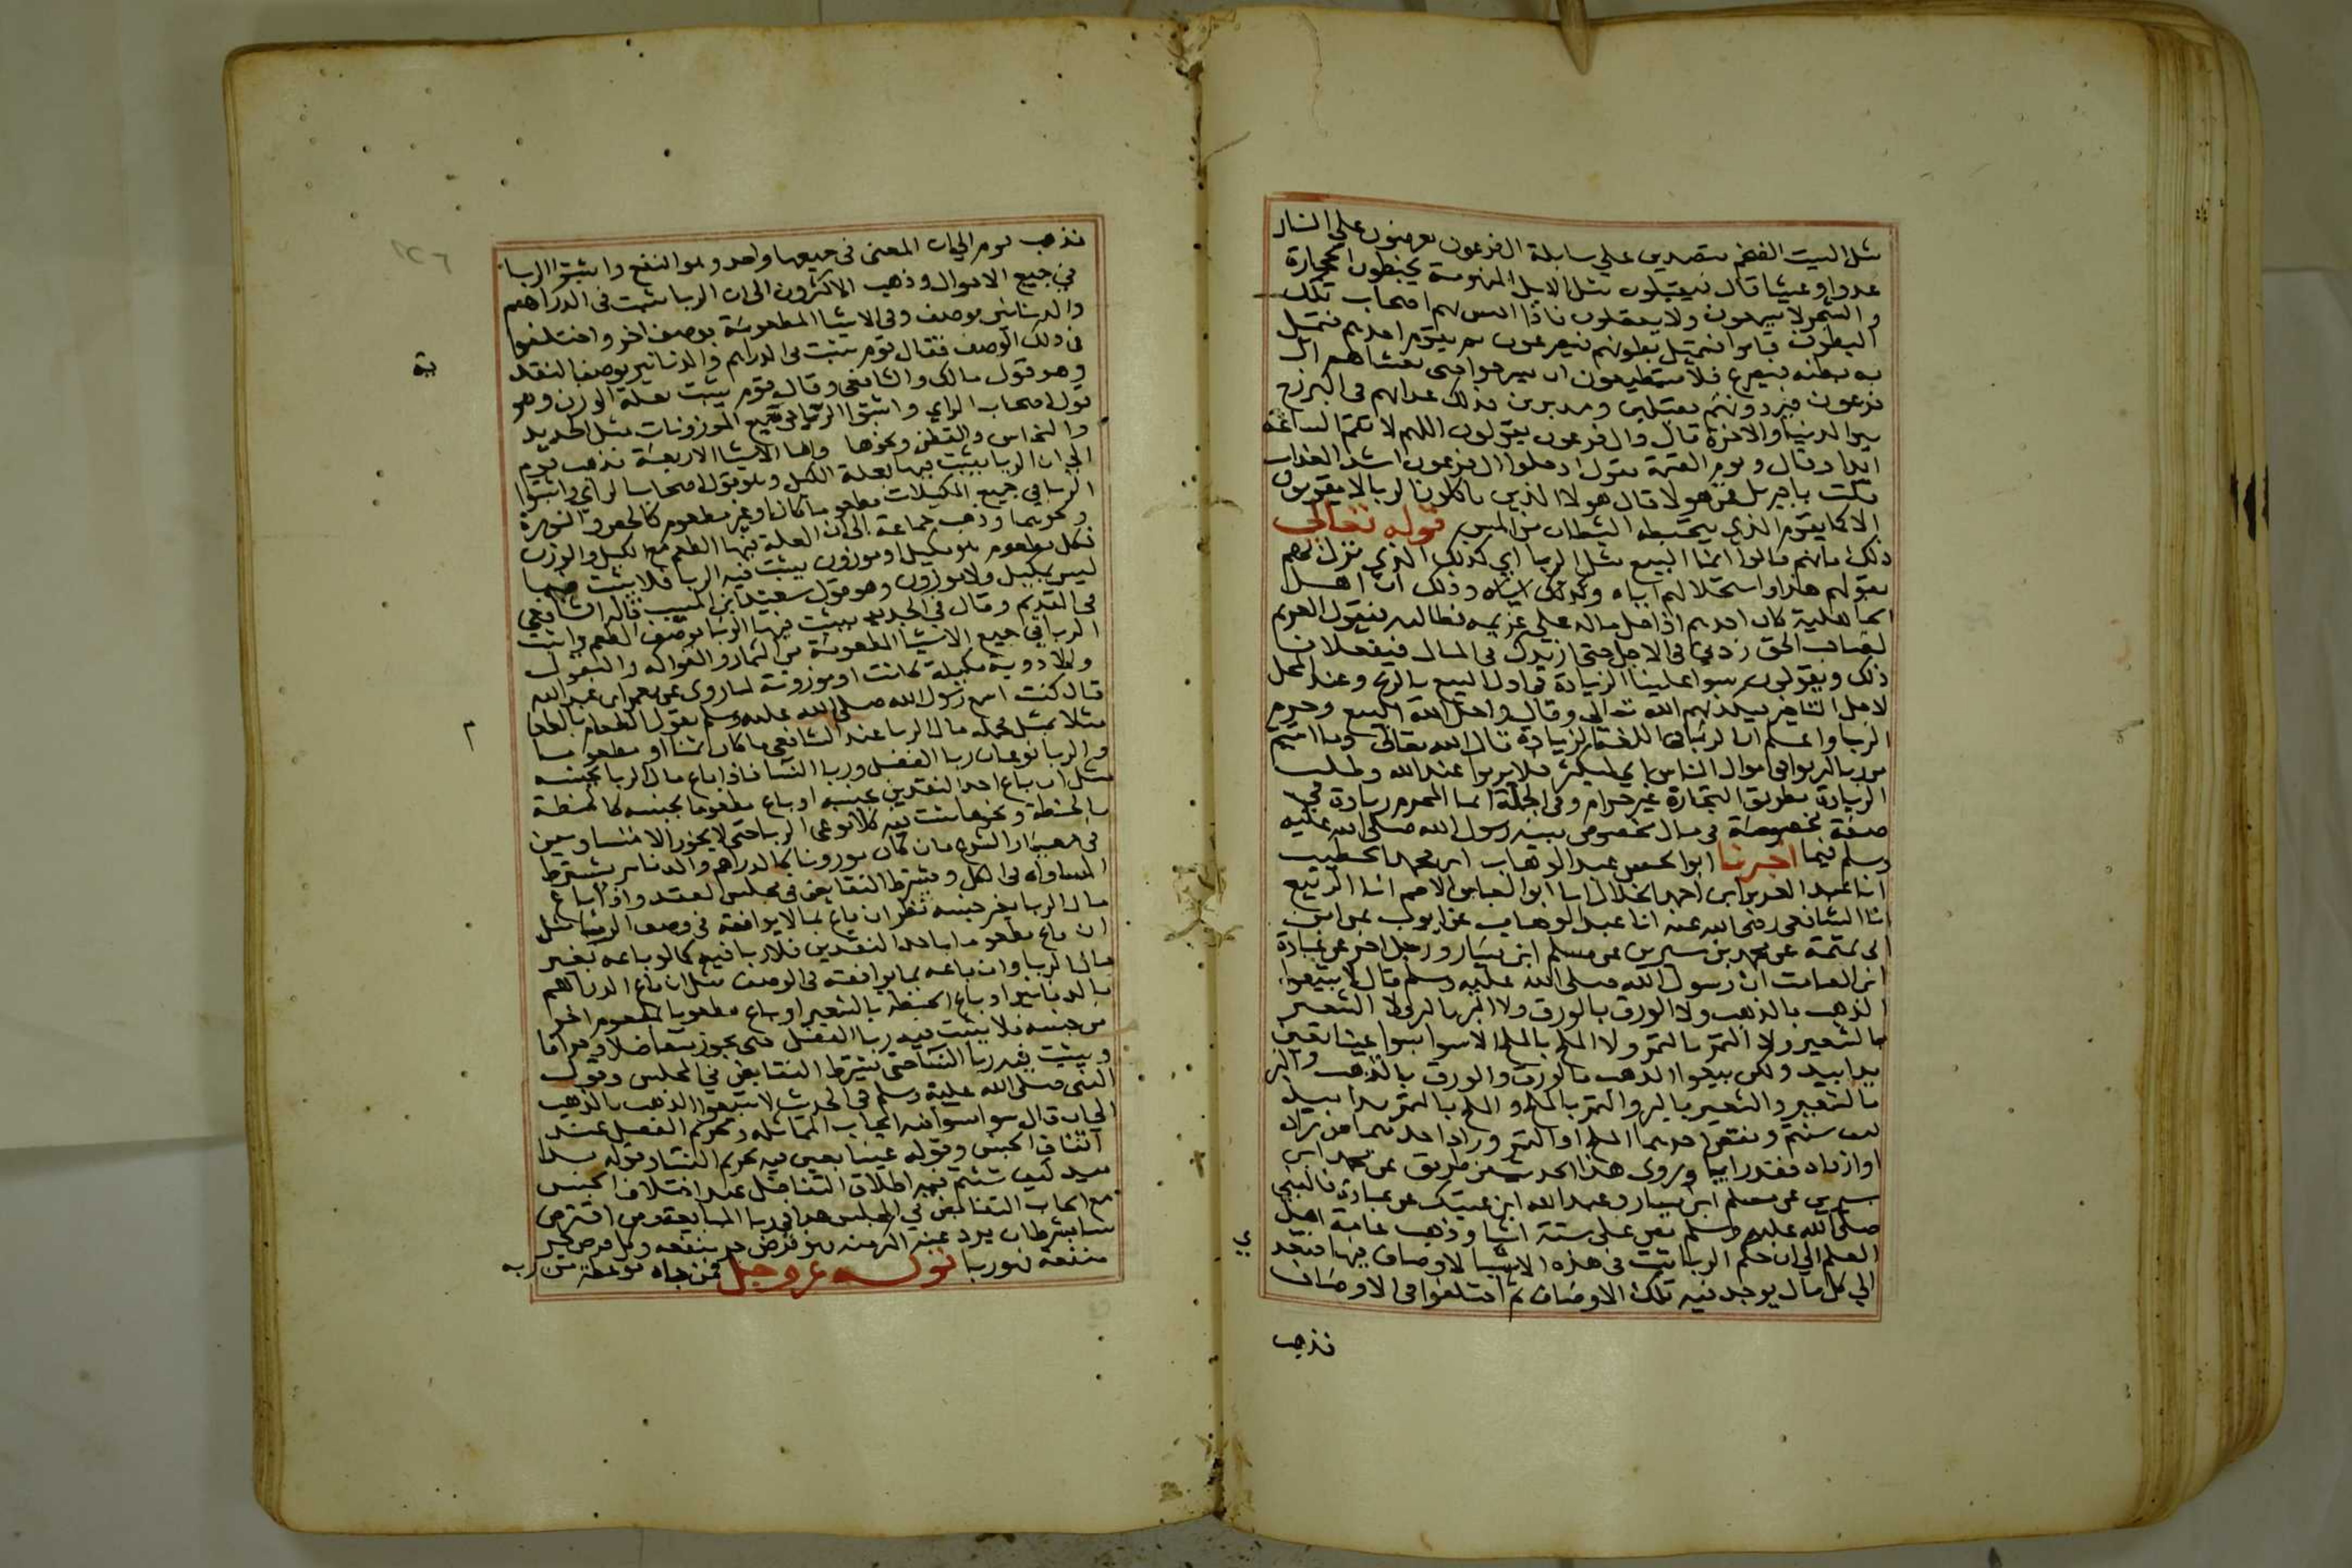 مثل البيت الضخم متصدين على سابلة ال فرعون يعرضون على النار
غدوا وعشيا قال فيقبلون مثل الابل المنهومة يخبطون الحجارة
والشجر لا يسمعون ولا يعقلون فاذا احس بهم اصحاب تلك
البطون قاموا فتميل بطونهم فيصرعون ثم يقوم احدهم فتميل
به بطنه فيصرع فلا يستطيعون ان يبرحوا حتى يغشاهم ال
فرعون فيردونهم مقبلين ومدبرين فذلك عذابهم في البرزخ
بين الدنيا والاخرة قال وال فرعون يقولون اللهم لا تقم الساعة
ابدا وقال ويوم القيمة يقول ادخلوا ال فرعون اشد العذاب
قلت يا جبريل من هولا قال هولا الذين ياكلون الربا لا يقومون
الا كما يقوم الذي يتخبطه الشيطان من المس قوله تعالى
ذلك بانهم قالوا انما البيع مثل الربا اي كذلك الذي نزل بهم
بقولهم هذا واستحلالهم اياه وذلك ان اهل
الجاهلية كان احدهم اذا حل ماله على غريمه فطالبه فيقول الغريم
لصاحب الحق زدني في الاجل حتى ازيدك في المال فيفعلان
ذلك ويقولون سوا علينا الزيادة في اول البيع بالربح وعند المحل
لاجل التاخير فكذبهم الله تعالى وقال واحل الله البيع وحرم
الربا واعلم ان الربا في اللغة الزيادة قال الله تعالى وما اتيتم
من ربا ليربوا في اموال الناس اي ليكثر فلا يربوا عند الله وطلب
الزيادة بطريق التجارة غير حرام وفي الجملة انما المحرم زيادة في
صفة مخصوصة في مال مخصوص بينه رسول الله صلى الله عليه
وسلم فيما اخبرنا ابو الحسن عبد الوهاب ابن محمد الخطيب
انا عبد العزيز ابن احمد الخلال انا ابو العباس الاصم انا الربيع
انا الشافعي رضي الله عنه انا عبد الوهاب عن ايوب عن ابن
ابي تميمة عن محمد بن سيرين عن مسلم ابن يسار ورجل اخر عن عبادة
ابن الصامت ان رسول الله صلى الله عليه وسلم قال لا تبيعوا
الذهب بالذهب ولا الورق بالورق ولا البر بالبر ولا الشعير
بالشعير ولا التمر بالتمر ولا الملح بالملح الا سوا بسوا عينا بعين
يدا بيد ولكن بيعوا الذهب بالورق والورق بالذهب والبر
بالشعير والشعير بالبر والتمر بالملح والملح بالتمر يدا بيد
كيف شيتم ونقص احدهما الملح او التمر وزاد احدهما من زاد
او ازداد فقد اربى وروى هذا الحديث من طريق عن محمد ابن
سيرين عن مسلم ابن يسار وعبد الله ابن عتيك عن عبادة فالنبي
صلى الله عليه وسلم نص على ستة اشيا وذهب عامة اهل
العلم الى ان حكم الربا ثبت في هذه الاشيا لاوصاف فيها فيتعد
الى كل مال يوجد فيه تلك الاوصاف ثم اختلفوا في الاوصاف
فذهب
فذهب قوم الى ان المعنى في جميعها واحد وهو النفع واثبتوا الربا
في جميع الاموال وذهب الاكثرون الى ان الربا يثبت في الدراهم
والدنانير بوصف وفي الاشيا المطعومة بوصف اخر واختلفوا
في ذلك الوصف فقال قوم يثبت في الدراهم والدنانير بوصف النقد
وهو قول مالك والشافعي وقال قوم يثبت بعلة الوزن وهو
قول اصحاب الراي واثبتوا الربا في جميع الموزونات مثل الحديد
والنحاس والقطن ونحوها واما الاشيا الاربعة فذهب قوم
الى ان الربا يثبت فيها بعلة الكيل وهو قول اصحاب الراي واثبتوا
الربا في جميع المكيلات مطعوما كان او غير مطعوم كالجص والنورة
ونحوهما وذهب جماعة الى ان العلة فيها الطعم مع الكيل والوزن
فكل مطعوم هو مكيل او موزون يثبت فيه الربا فلا يثبت فيما
ليس بمكيل ولا موزون وهو قول سعيد ابن المسيب قاله الشافعي
في القديم وقال في الجديد يثبت فيها الربا بوصف الطعم واثبت
الربا في جميع الاشيا المطعومة من الثمار والفواكه والبقول
والادوية مكيلة كانت او موزونة لما روى عن معمر ابن عبد الله
قال كنت اسمع رسول الله صلى الله عليه وسلم يقول الطعام بالطعام
مثلا بمثل فجملة مال الربا عند الشافعي ما كان ثمنا او مطعوما
والربا نوعان ربا الفضل وربا النسا فاذا باع مال الربا بجنسه
مثل ان باع احد النقدين بجنسه او باع مطعوما بجنسه كالحنطة
بالحنطة ونحوها يثبت فيه كلا نوعي الربا حتى لا يجوز الا متساويين
في معيار الشرع فان كان موزونا كالدراهم والدنانير يشترط
المساواة في الكل ويشترط التقابض في مجلس العقد واذا باع
مال الربا بغير جنسه نظر ان باع بما لا يوافقه في وصف الربا مثل
ان باع مطعوما باحد النقدين فلا ربا فيه كما لو باعه بغير
مال الربا وان باعه بما يوافقه في الوصف مثل ان باع الدراهم
بالدنانير او باع الحنطة بالشعير او باع مطعوما بمطعوم اخر
من جنسه فلا يثبت فيه ربا الفضل حتى يجوز متفاضلا وجزافا
ويثبت فيه ربا النسا حتى يشترط التقابض في المجلس وقول
النبي صلى الله عليه وسلم في الحديث لا تبيعوا الذهب بالذهب
الى ان قال سوا بسوا فيه ايجاب المماثلة وتحريم الفضل عند
اتفاق الجنس وقوله عينا بعين فيه تحريم النسا وقوله يدا
بيد كيف شئتم فيه اطلاق التفاضل عند اختلاف الجنس
مع ايجاب التقابض في المجلس هذا في ربا المبايعة ومن اقترض
شيا بشرط ان يرد عليه افضل منه فهو قرض جر منفعة وكل قرض جر
منفعة فهو ربا قوله عز وجل فمن جاه موعظة من ربه